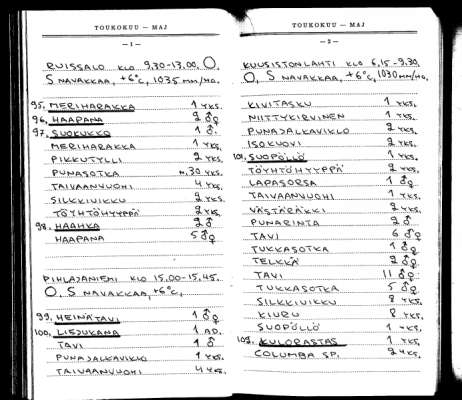 TOUKOKUU — MAJ
— 1 —
RUISSALO KLO 9,30-13.00. O,
S NAVAKKAA, +6°C, 1035 MM/HG.
95. MERIHARAKKA 1 YKS.
96. HAAPANA 2 ♂♀
97. SUOKUKKO 1 ♂.
MERIHARAKKA 1 YKS.
PIKKUTYLLI 2 YKS.
PUNASOTKA N. 30 YKS.
TAIVAANVUOHI 4 YKS.
SILKKIUIKKU 2 YKS.
TÖYHTÖHYYPPÄ 2 YKS.
98. HAAHKA 2 ♂
HAAPANA 5 ♂♀
PIHLAJANIEMI KLO 15.00-15.45.
O, S NAVAKKAA, +6°C,
99. HEINÄTAVI 1 ♂♀
100. LIEJUKANA 1 AD.
TAVI 1 ♂
PUNAJALKAVIKLO 1 YKS.
TAIVAANVUOHI 4 YKS.
TOUKOKUU — MAJ
— 2 —
KUUSISTONLAHTI KLO 6,15-9.30.
O, S NAVAKKAA, +6°C, 1030 MM/HG.
KIVITASKU 1 YKS.
NIITTYKIRVINEN 1 YKS.
PUNAJALKAVIKLO 2 YKS.
ISOKUOVI 2 YKS.
101. SUOPÖLLÖ 1 YKS.
TÖYHTÖHYYPPÄ 2 YKS.
LAPASORSA 1 ♂♀
TAIVAANVUOHI 1 YKS.
VÄSTÄRÄKKI 2 YKS.
PUNARINTA 2 ♂
TAVI 6 ♂♀
TUKKASOTKA 1 ♂♀
TELKKÄ 2 ♂♀
TAVI 11 ♂
TUKKASOTKA 5 ♂♀
SILKKIUIKKU 8 YKS.
KIURU 8 YKS.
SUOPÖLLÖ 1 YKS.
102. KULORASTAS 1 YKS.
COLUMBA SP. 2 YKS.